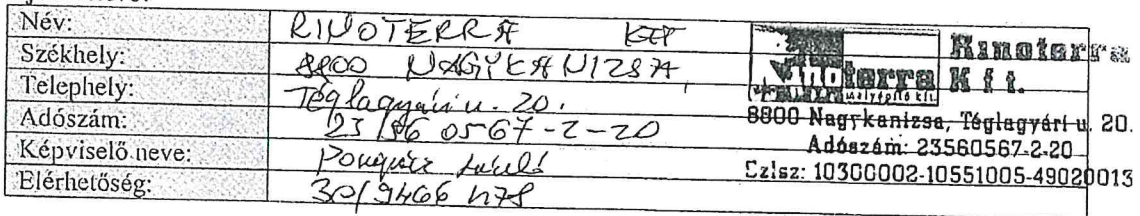 Név: RINOTERRA KFT
Székhely: 8800 NAGYKANIZSA
Telephely: Téglagyári u. 20.
Adószám: 23 56 0567-2-20
Képviselő neve: Pongrácz
Elérhetőség: 30/9466
Rinoterra
mélyépítő kft.
Rinoterra
Kft.
8800 Nagykanizsa, Téglagyári u. 20.
Adószám: 23560567-2-20
Czlsz: 10300002-10551005-49020013